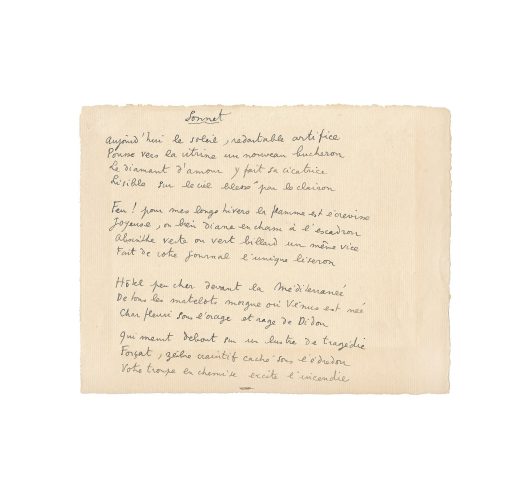 Sonnet
Aujourd'hui le soleil, redoutable artifice
Pousse vers la vitrine un nouveau bucheron
Le diamant d'amour y fait sa cicatrice
Lisible sur le ciel blessé par le clairon
Feu ! pour mes longs hivers la flamme est écrevisse
Joyeuse, ou bien Diane en cham à l'escadron
Absinthe verte ou vert billard un même vice
Fait de votre journal l'unique liseron
Hôtel peu cher devant la Méditerranée
De tous les matelots morgue où Vénus est née
Char fleuri sous l'orage et rage de Didon
Qui meurt debout sur un lustre de tragédie
Forçat, zèbre craintif caché sous l'édredon
Votre troupe en chemise excite l'incendie